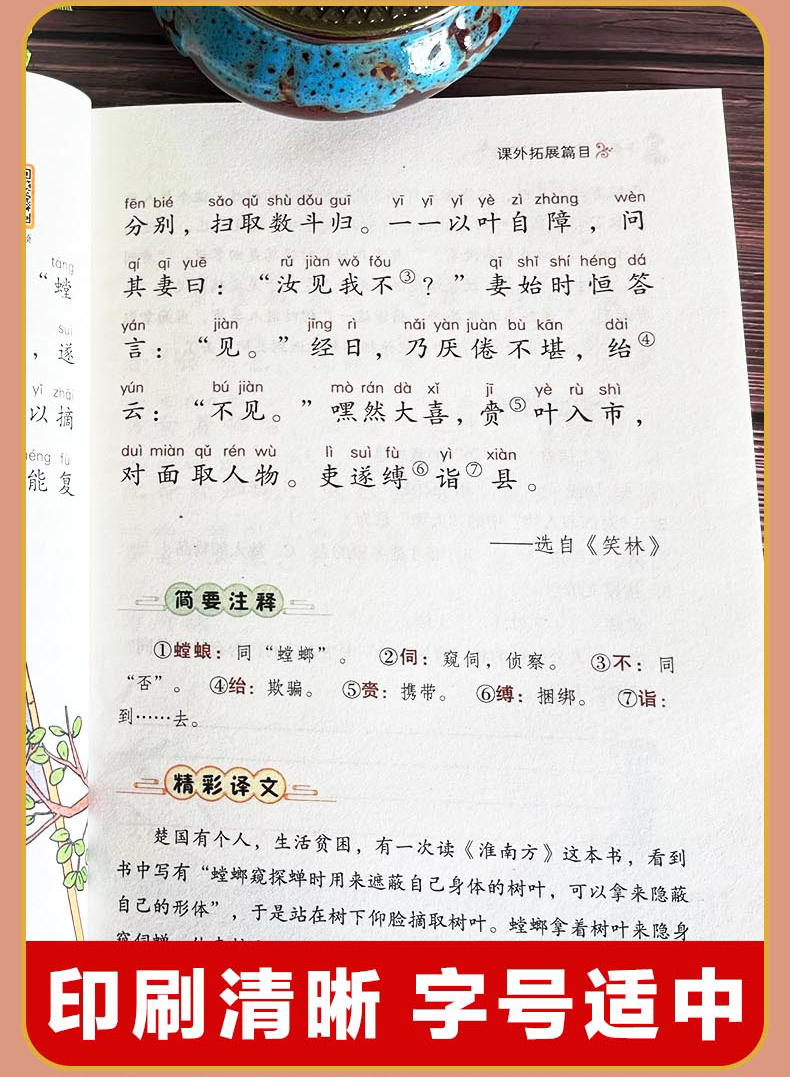 课外拓展篇目
tāng
“螳
suì
，遂
yǐ zhāi
以摘
néng fù
能复
fēn bié sǎo qǔ shù dǒu guī yī yī yǐ yè zì zhàng wèn
分别，扫取数斗归。一一以叶自障，问
qí qī yuē rǔ jiàn wǒ fǒu qī shǐ shí héng dá
其妻曰：“汝见我不③？”妻始时恒答
yán jiàn jīng rì nǎi yàn juàn bù kān dài
言：“见。”经日，乃厌倦不堪，绐④
yún bú jiàn mò rán dà xǐ jī yè rù shì
云：“不见。”嘿然大喜，赍⑤叶入市，
duì miàn qǔ rén wù lì suì fù yì xiàn
对面取人物。吏遂缚⑥诣⑦县。
——选自《笑林》
简要注释
①螳娘：同“螳螂”。 ②伺：窥伺，侦察。 ③不：同
“否”。 ④绐：欺骗。 ⑤赍：携带。 ⑥缚：捆绑。 ⑦诣：
到……去。
精彩译文
楚国有个人，生活贫困，有一次读《淮南方》这本书，看到
书中写有“螳螂窥探蝉时用来遮蔽自己身体的树叶，可以拿来隐蔽
自己的形体”，于是站在树下仰脸摘取树叶。螳螂拿着树叶来隐身
窥伺蝉
印刷清晰 字号适中